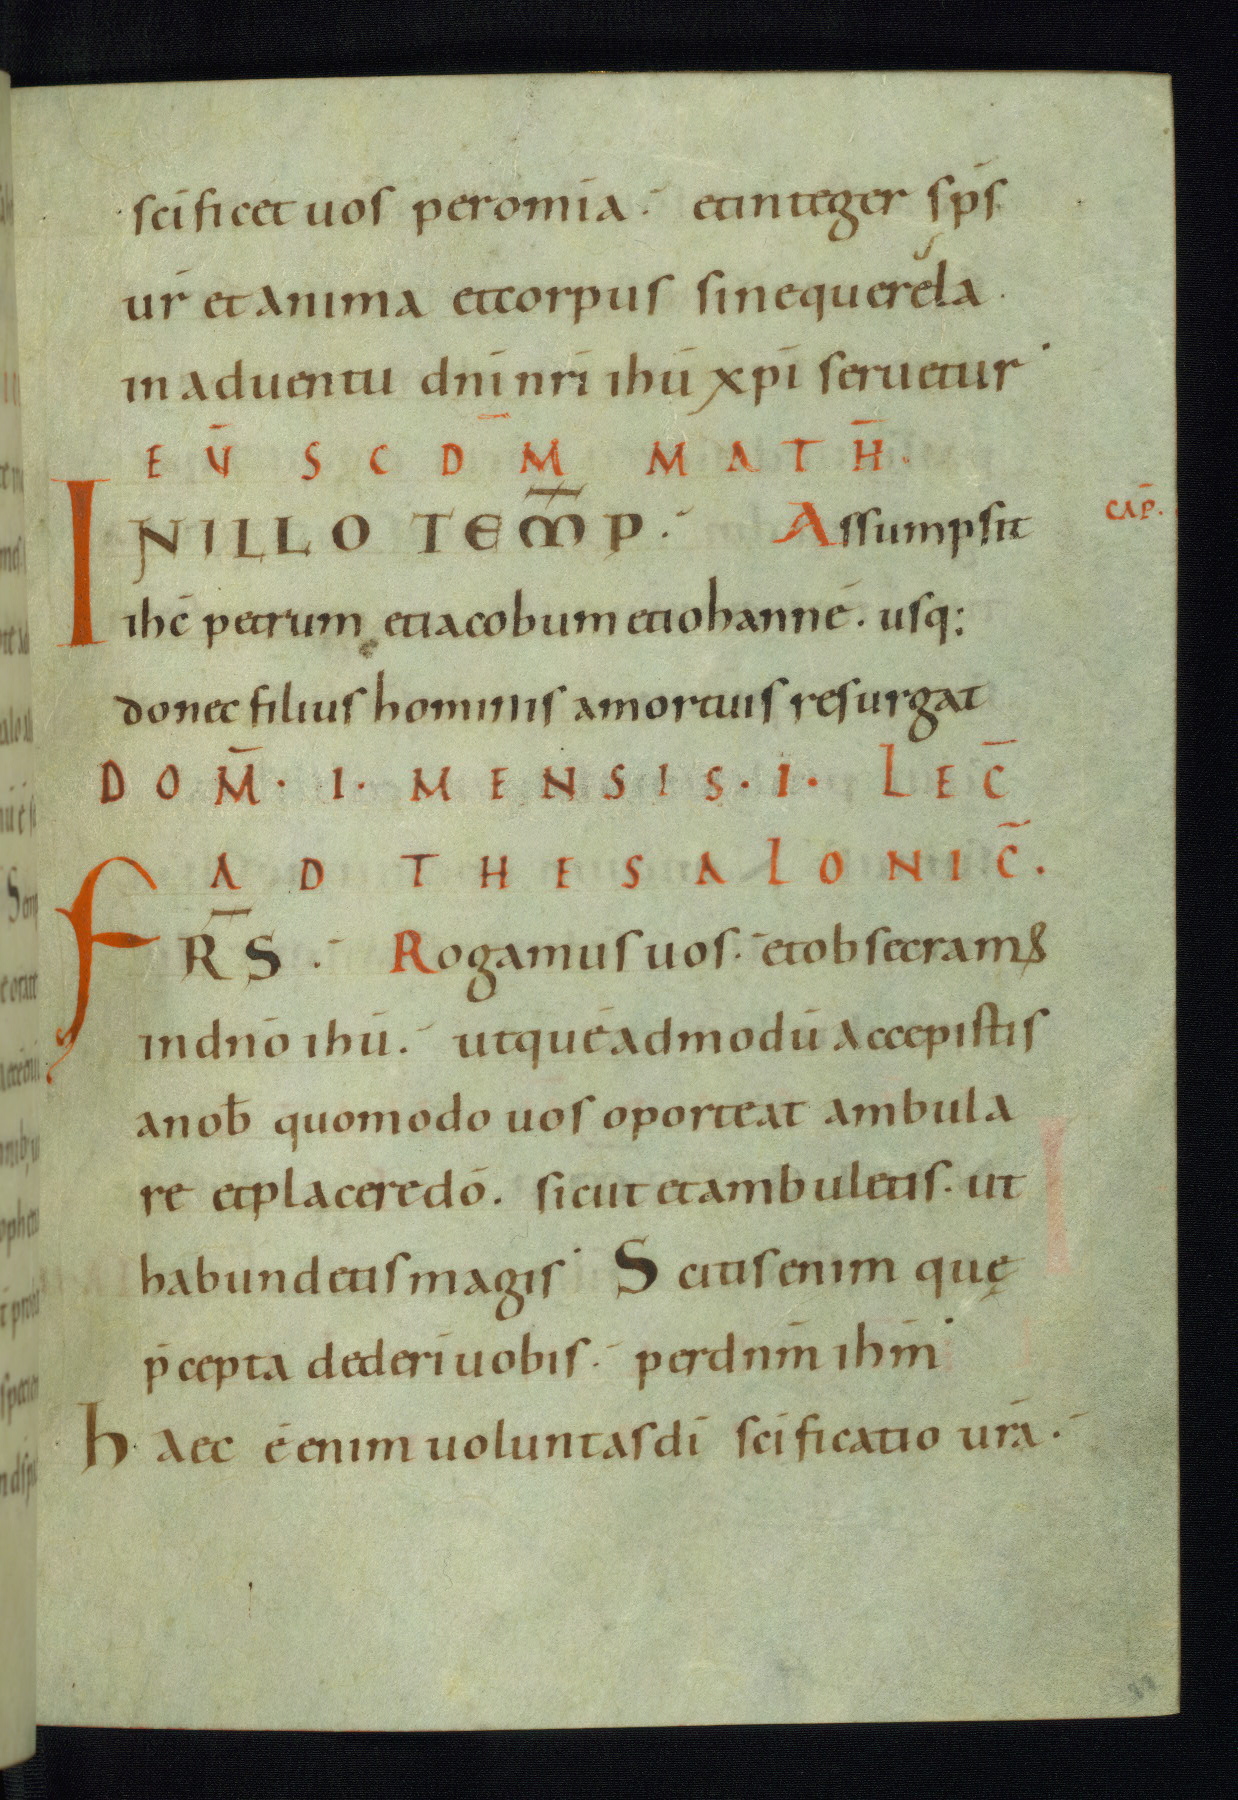 scīficet uos peromīa · etinteger sp̄s
ur̄ etanima etcorpus sinequerela
inaduentu dn̄i nr̄i ihū xp̄i seruetur
EV̄ SCDM̄ MATH̄.
INILLO TEM̄P. Assumpsit
CAP̄.
ihc̄ petrum etiacobum etiohannē. usq;
donec filius hominis amortuis resurgat
DOM̄. I. MENSIS. I. LEC̄
AD THESALONIC̄.
FR̄S. Rogamus uos. etobsecramus
indnō ihū. utquēadmodū accepistis
anob̄ quomodo uos oporteat ambula
re etplaceredō. sicut etambuletis. ut
habundetis magis Scitis enim quę
p̄cepta dederī uobis. perdnm̄ ihm̄
haec ē enim uoluntas dī scīficatio urā.